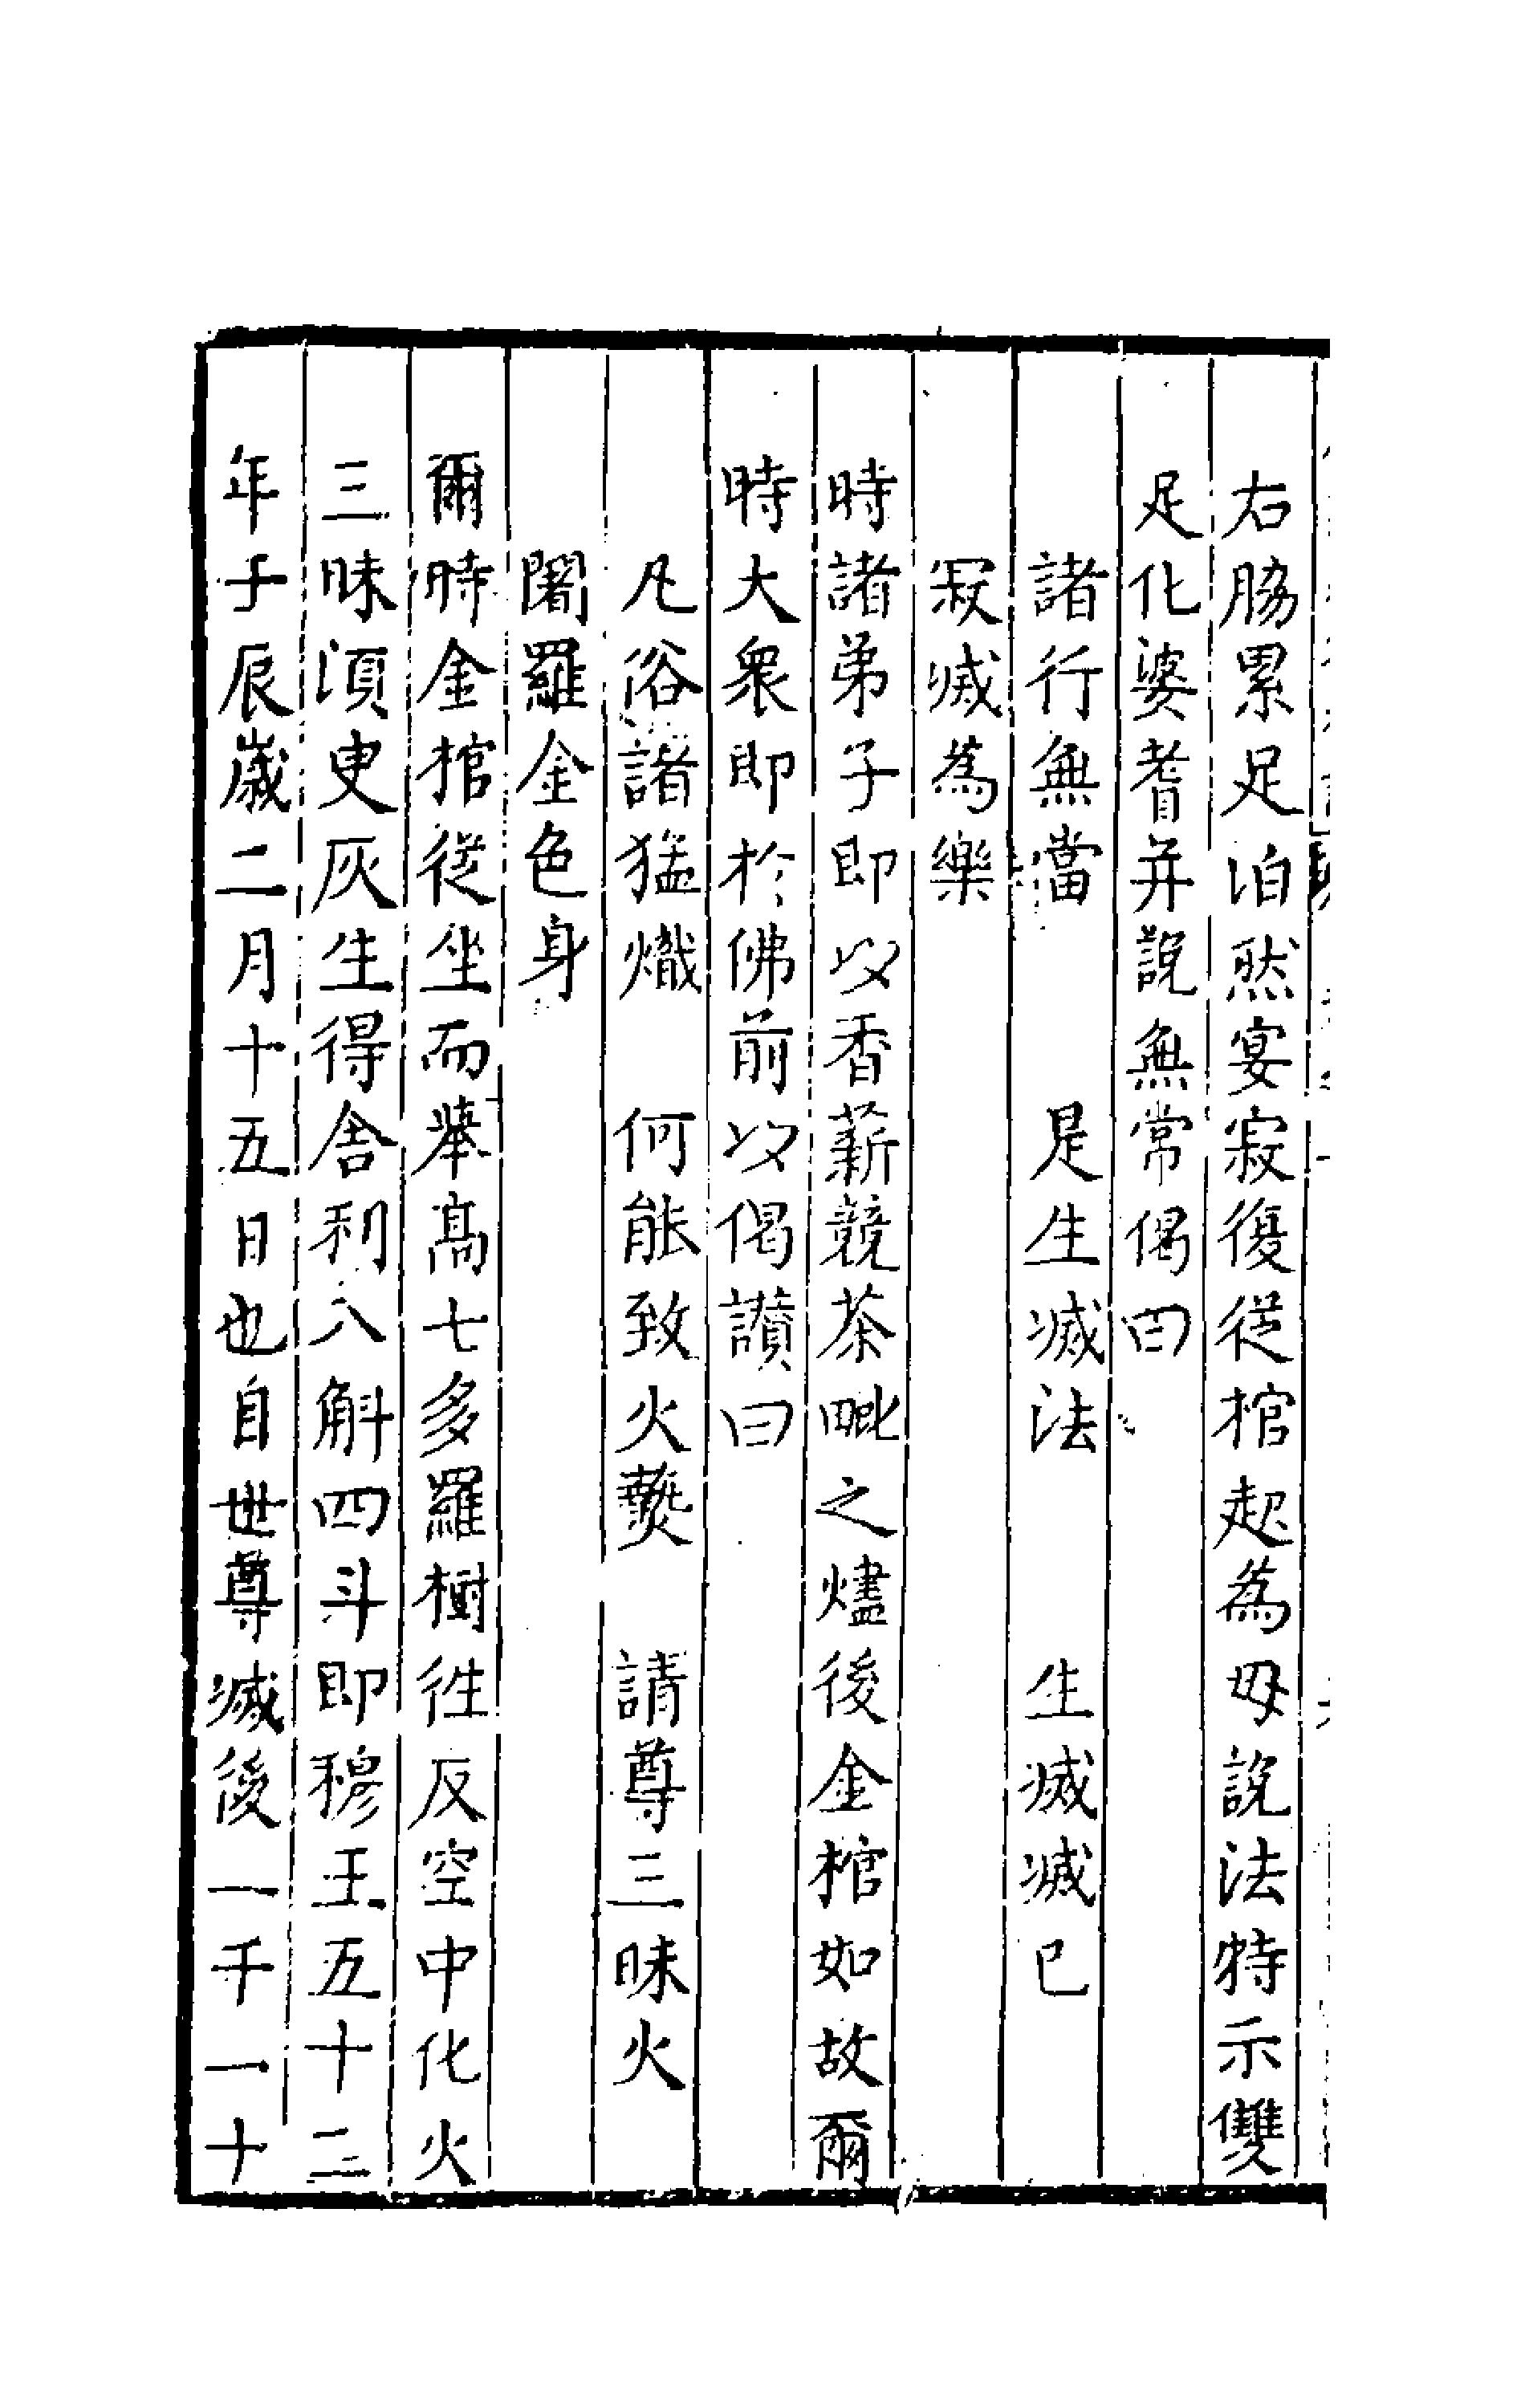 右脇累足泊然宴寂復從棺起為母說法特示雙
足化婆耆并說無常偈曰
諸行無當　是生滅法　生滅滅已
寂滅為樂
時諸弟子即以香薪競茶毗之燼後金棺如故爾
時大衆即於佛前以偈讃曰
凡俗諸猛熾　何能致火爇　請尊三昧火
闍羅金色身
爾時金棺從坐而舉高七多羅樹徃反空中化火
三昧湏臾灰生得舍利八斛四斗即穆王五十二
年壬辰歲二月十五日也自世尊滅後一千一十